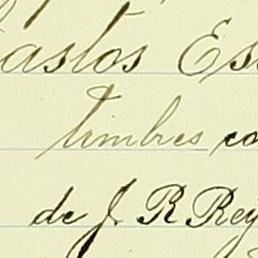 Gastos Es
timbres co
de J. R Rey